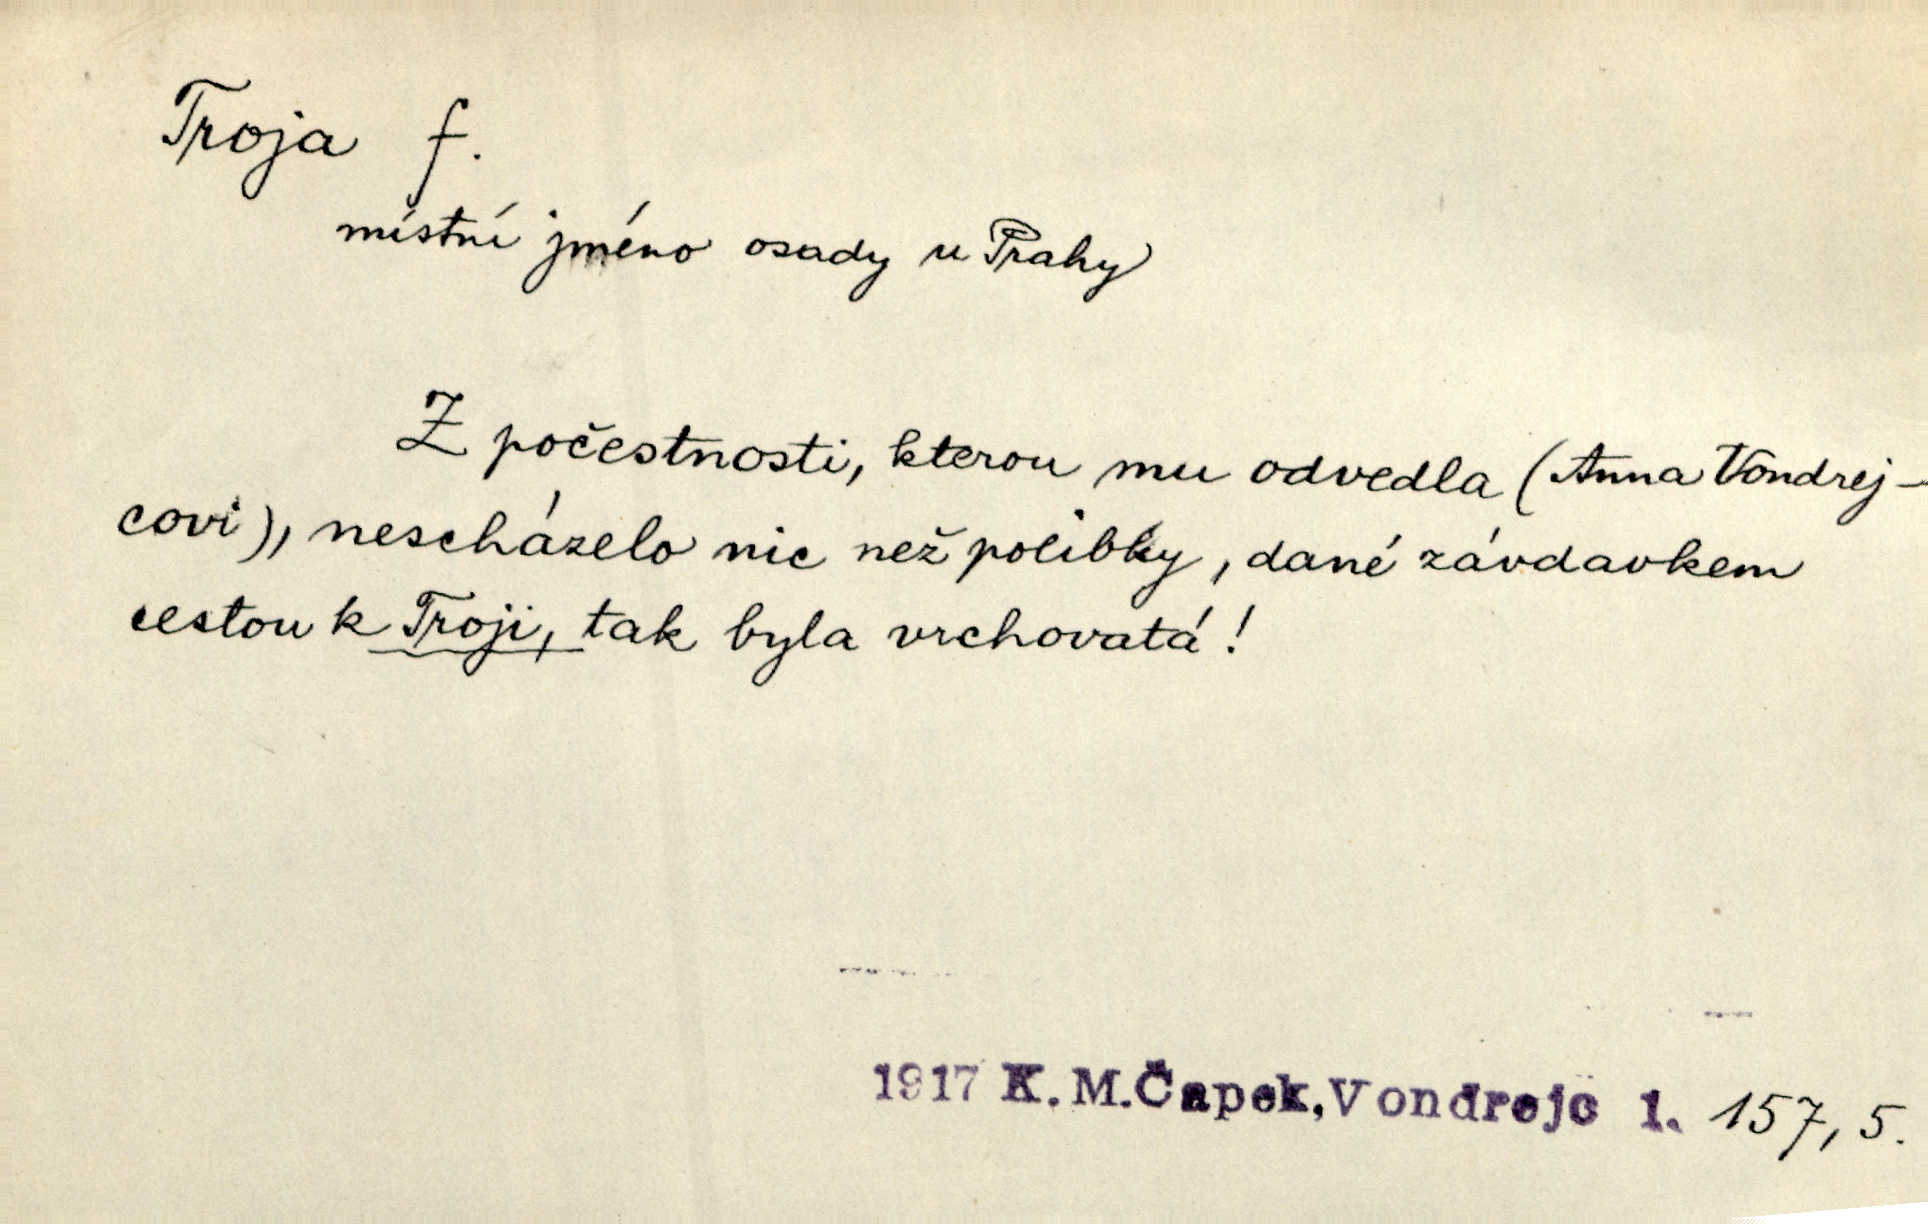 Troja f.
místní jméno osady u Prahy
Z počestnosti, kterou mu odvedla (Anna Vondrej-
covi), nescházelo nic než polibky, dané závdavkem
cestou k Troji, tak byla vrchovatá!
1917 K. M. Čapek, Vondrejc 1. 157, 5.